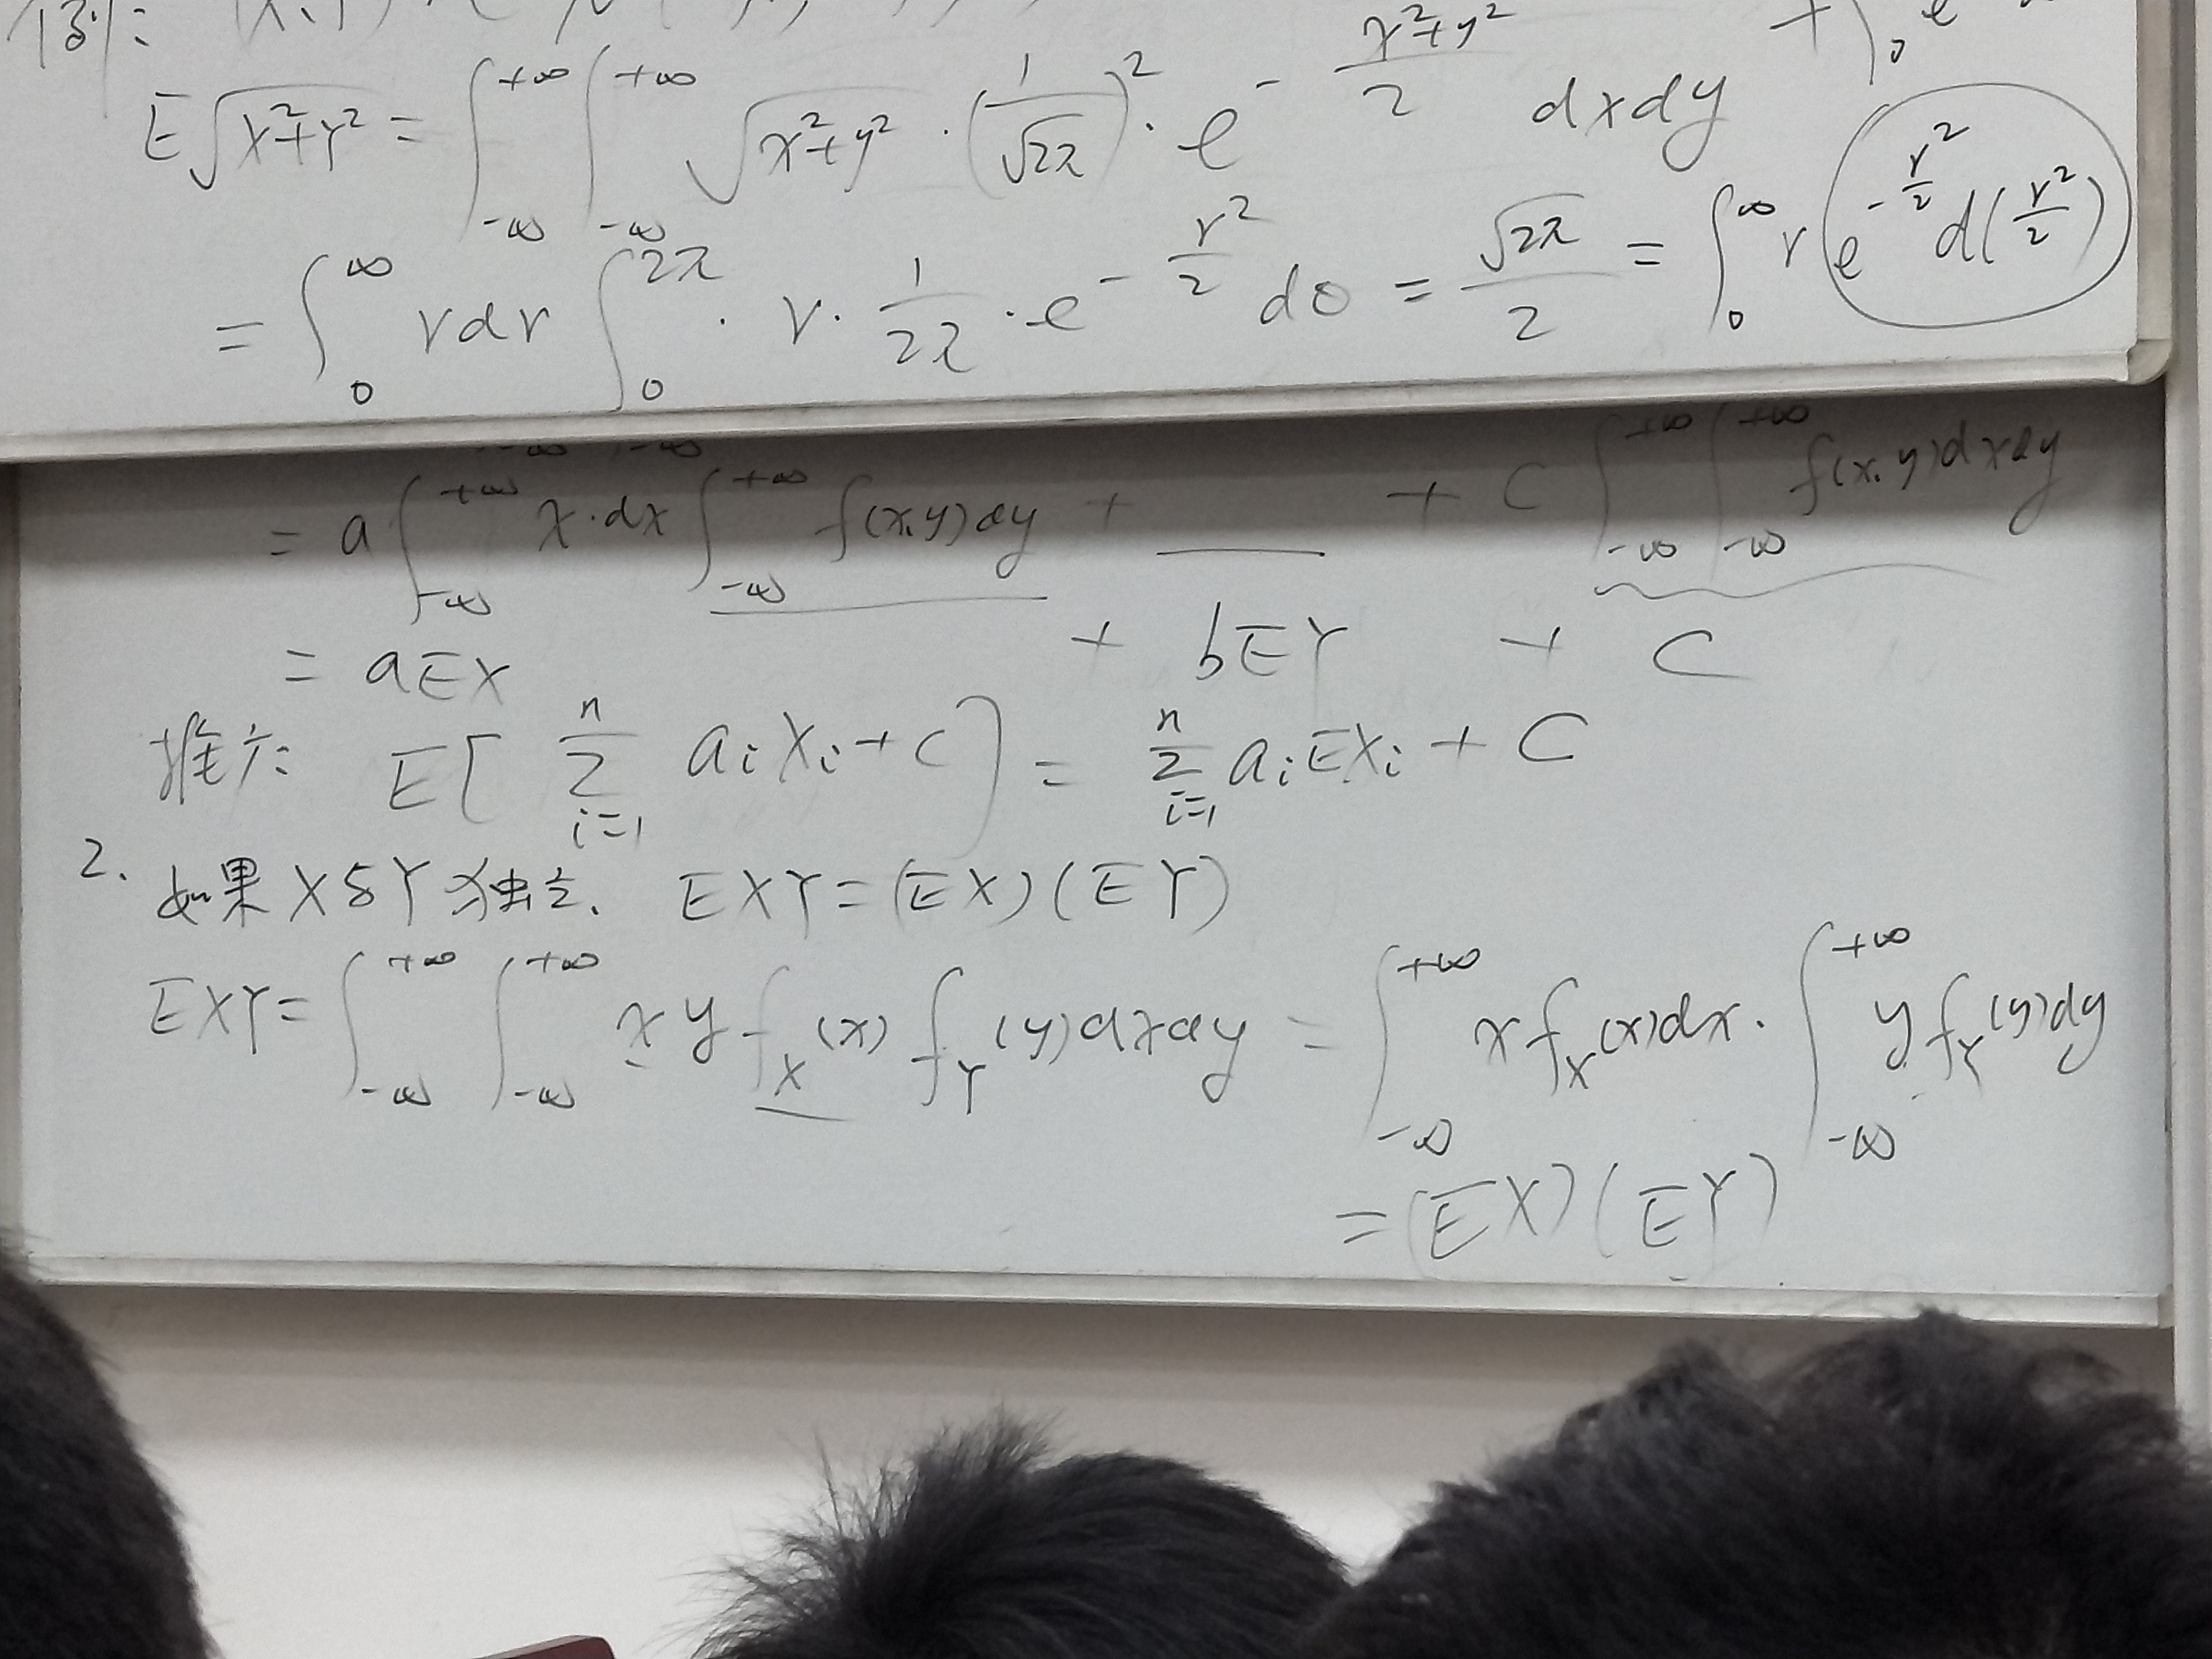 例:
E√(X²+Y²) = ∫_{-∞}^{+∞} ∫_{-∞}^{+∞} √(x²+y²) · (1/√2π)² · e^{-(x²+y²)/2} dxdy
= ∫_0^∞ r dr ∫_0^{2π} · r · 1/2π · e^{-r²/2} dθ = √2π/2 = ∫_0^∞ r e^{-r²/2} d(r²/2)
= a ∫_{-∞}^{+∞} x·dx ∫_{-∞}^{+∞} f(x,y)dy + ___ + C ∫_{-∞}^{+∞} ∫_{-∞}^{+∞} f(x,y)dxdy
= aEX + bEY + C
推广: E[ ∑_{i=1}^n a_i X_i + C ] = ∑_{i=1}^n a_i EX_i + C
2. 如果X与Y独立. EXY = (EX)(EY)
EXY = ∫_{-∞}^{+∞} ∫_{-∞}^{+∞} x y f_X(x) f_Y(y)dxdy = ∫_{-∞}^{+∞} x f_X(x)dx · ∫_{-∞}^{+∞} y f_Y(y)dy
= (EX)(EY)